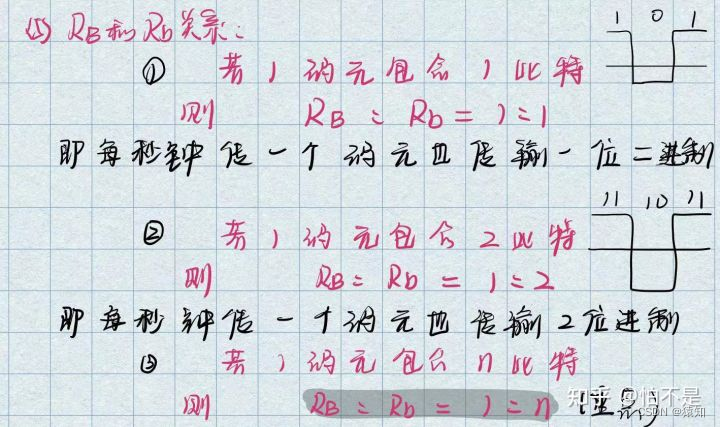 (5) RB和Rb关系：
1 0 1
① 若1码元包含1比特
则 RB：Rb = 1：1
即每秒钟传一个码元也传输一位二进制
11 10 11
② 若1码元包含2比特
则 RB：Rb = 1：2
即每秒钟传一个码元也传输2位进制
③ 若1码元包含n比特
则 RB：Rb = 1：n
知乎 @怕不是
CSDN @猿知